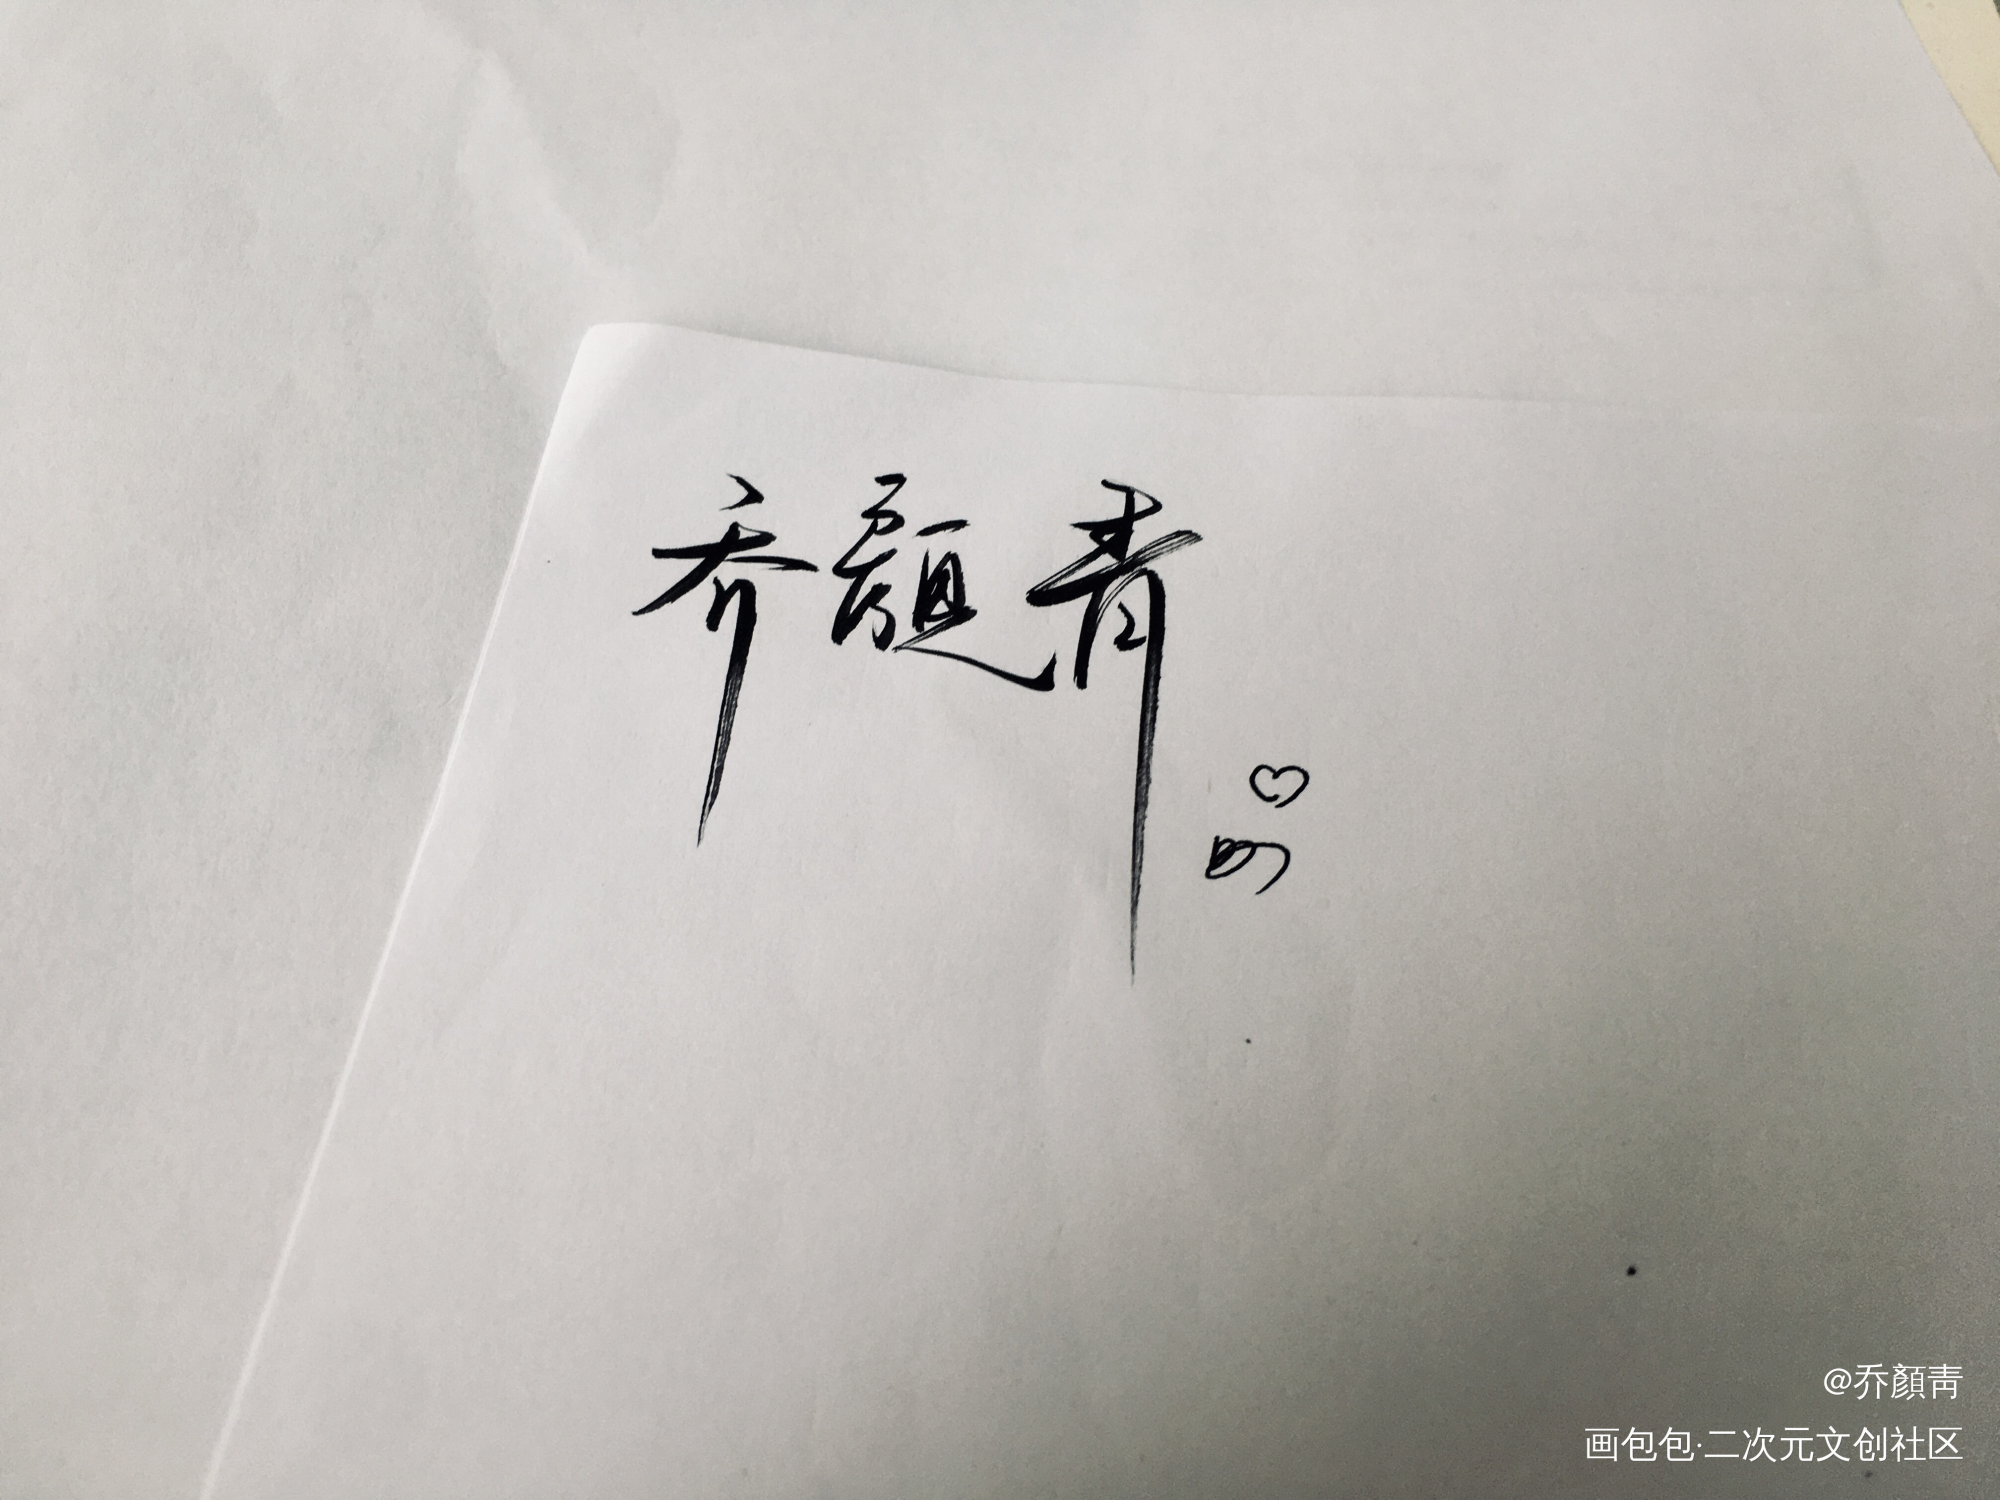 乔顏青
@乔顏靑
画包包·二次元文创社区